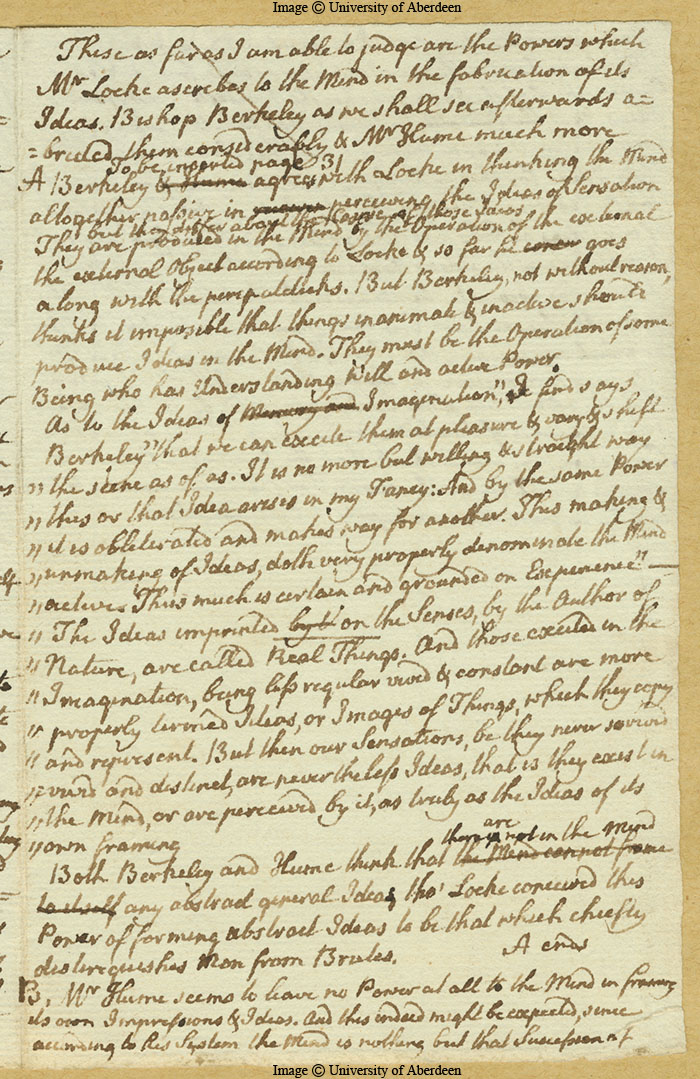 Image © University of Aberdeen
These as far as I am able to judge are the Powers which
Mr Locke ascribes to the Mind in the fabrication of its
Ideas. Bishop Berkeley as we shall see afterwards a=
=bridged them considerably & Mr Hume much more
to be inserted page 31
A Berkeley & Hume agrees with Locke in thinking the Mind
altogether passive in perceiving the Ideas of Sensation
but they differ about the Cause of those Ideas
They are produced in the Mind by the Operation of the external
the external Object according to Locke & so far he goes
along with the peripateticks. But Berkeley, not without reason,
thinks it impossible that things inanimate & inactive should
produce Ideas in the Mind. They must be the Operation of some
Being who has Understanding Will and active Power.
As to the Ideas of Memory and Imagination, "I find says
Berkeley" that we can excite them at pleasure & vary & shift
" the scene as of as. It is no more but willing & straight way
" this or that Idea arises in my Fancy: And by the same Power
" it is obliterated and makes way for another. This making &
" unmaking of Ideas, doth very properly denominate the Mind
" active. Thus much is certain and grounded on Experience"—
" The Ideas imprinted by t on the Senses, by the Author of
" Nature, are called Real Things. And those excited in the
" Imagination, being less regular vivid & constant are more
" properly termed Ideas, or Images of Things, which they copy
" and represent. But then our Sensations, be they never so vivid
" vivid and distinct, are nevertheless Ideas, that is they exist in
" the Mind, or are perceived by it, as truly as the Ideas of its
" own framing
there is are not in the mind
Both Berkeley and Hume think that the Mind cannot frame
to itself any abstract general Ideas, tho' Locke conceived this
Power of forming abstract Ideas to be that which chiefly
distinguishes Man from Brutes. A ends
B, Mr Hume seems to leave no Power at all to the Mind in framing
its own Impressions & Ideas. And this indeed might be expected, since
according to his System the Mind is nothing but that Succession of
Image © University of Aberdeen